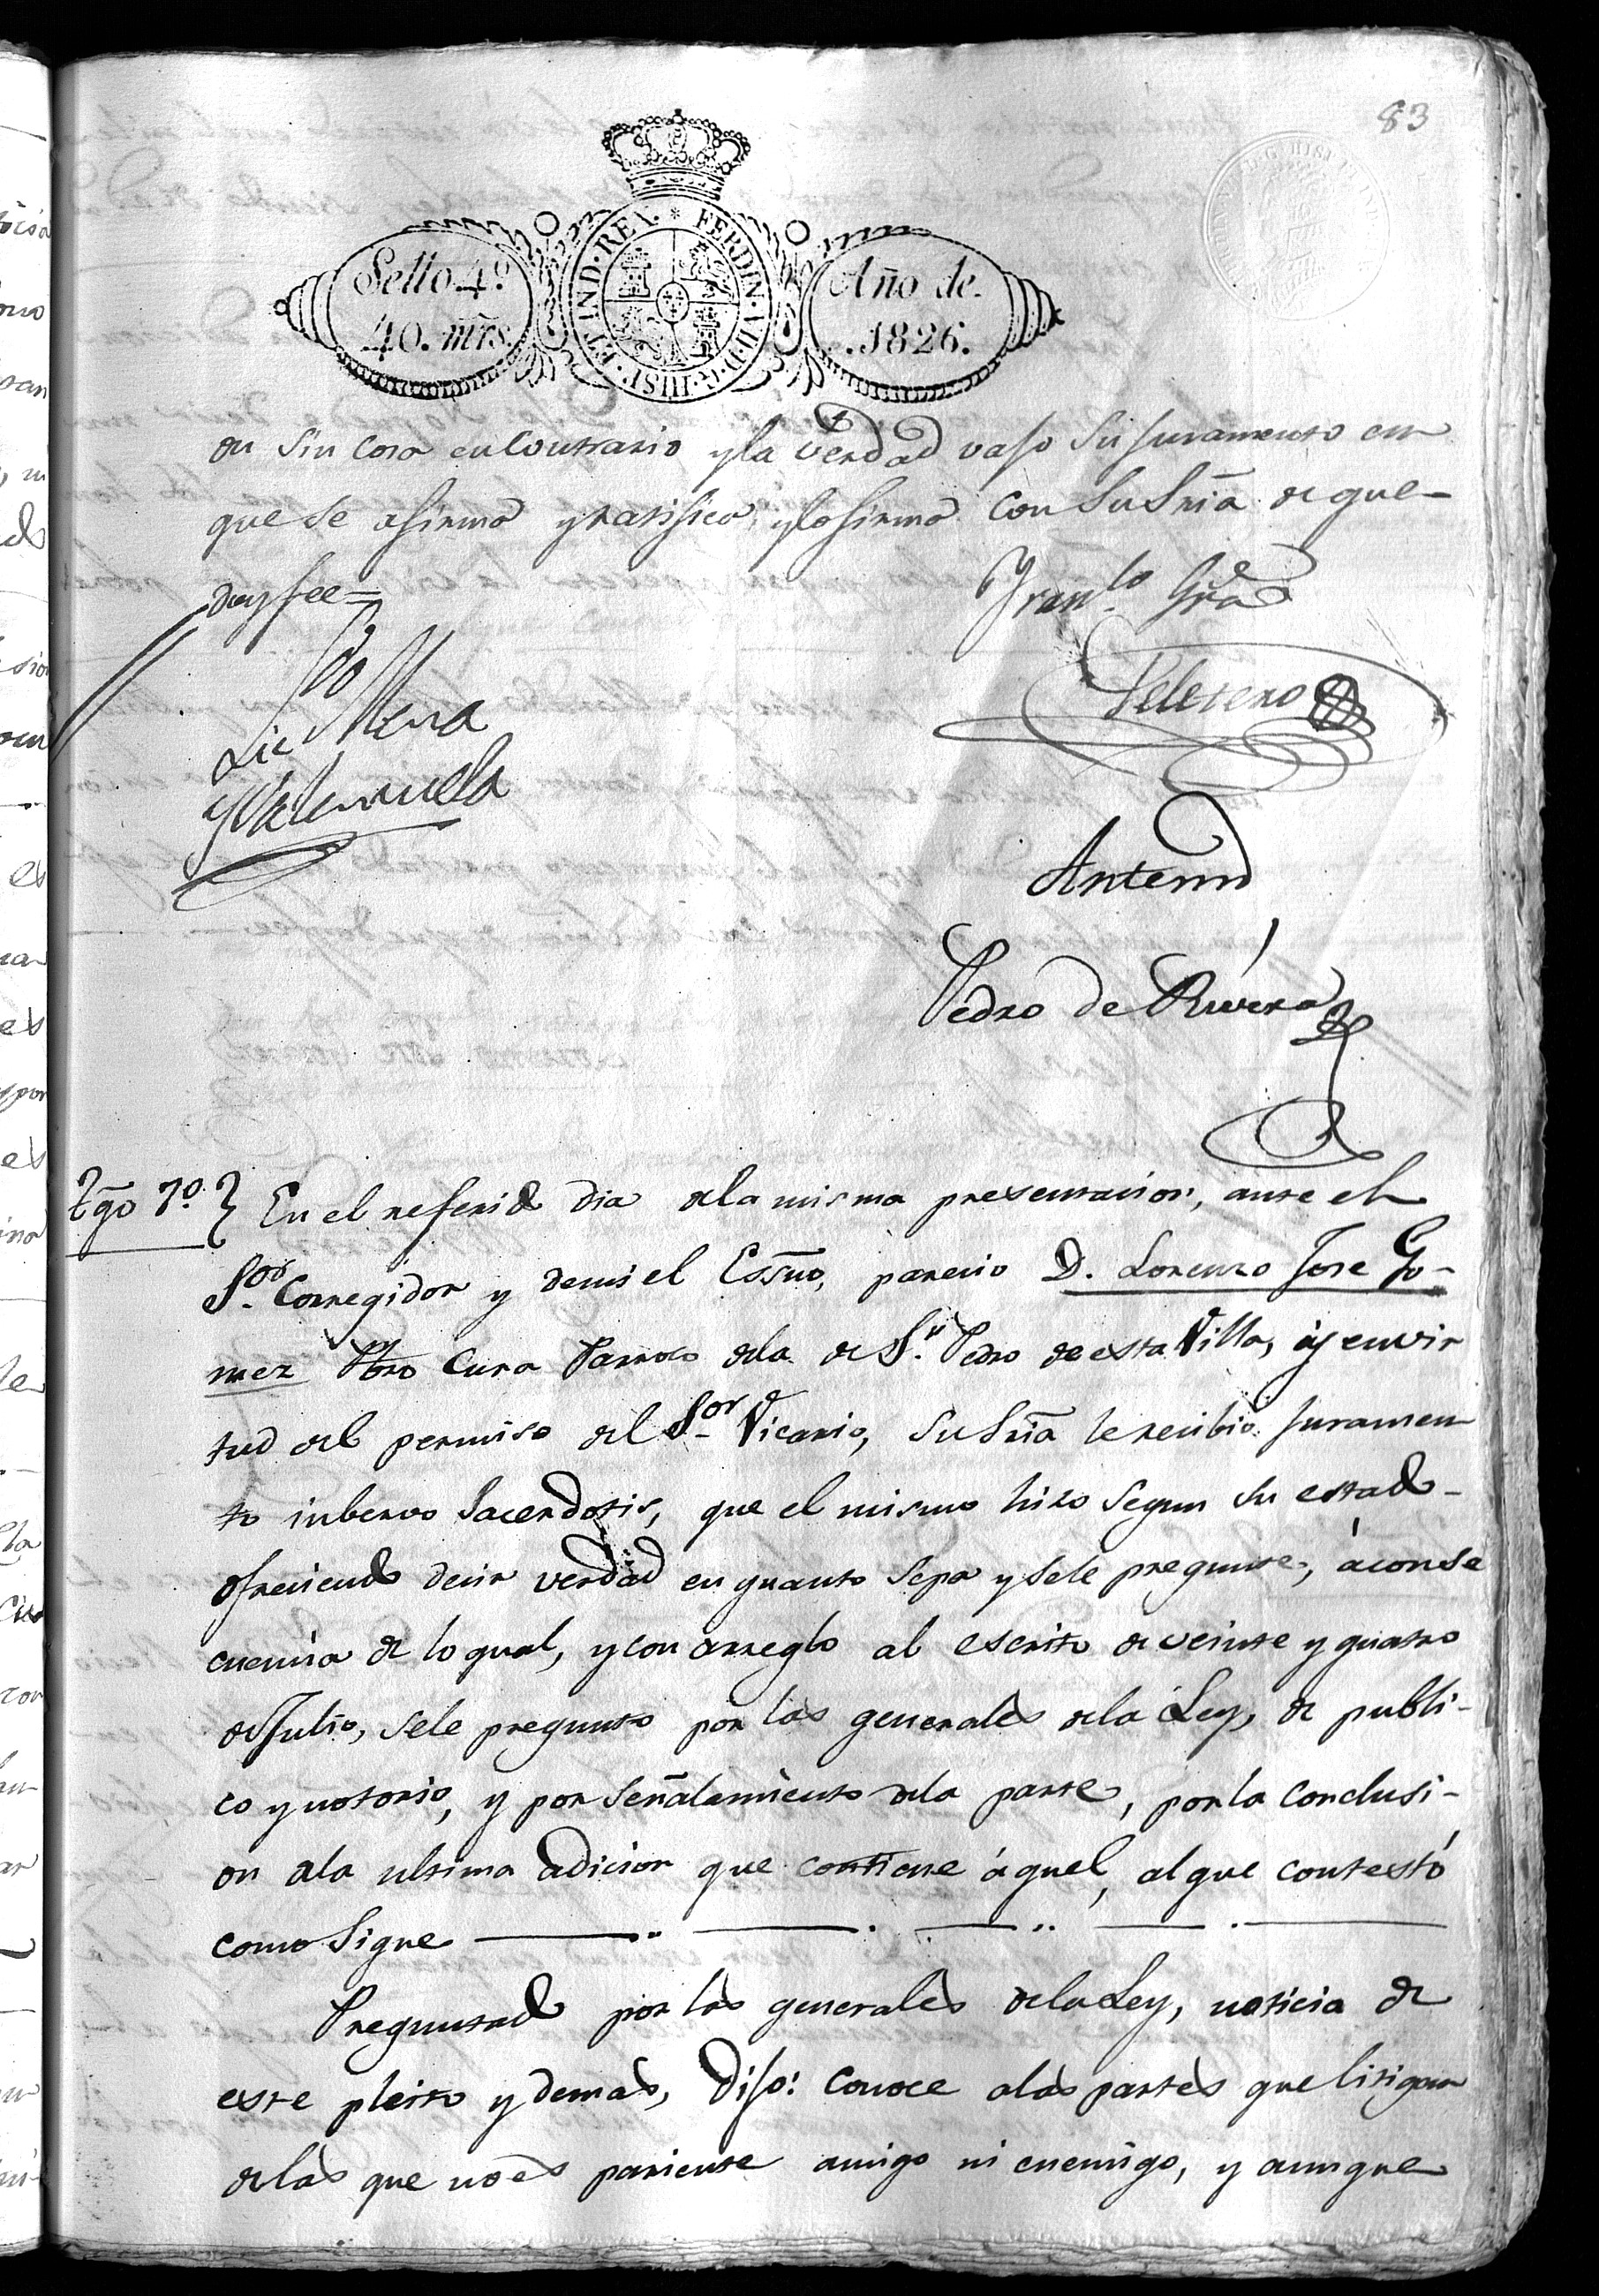 83
Sello 4.º
40. mrs.
FERDIN. VII. D. G. HISP. ET IND. REX.
Año de.
.1826.
on sin cosa en contrario y la verdad vajo su juramento en
que se afirmó y ratificó, y lo firmó con su Sria de que
doy fee=
Franco. Gra
Peletero
Lic do Mena
y Valenzuela
Antemi
Pedro de Rivera
Tgo 7º. } En el referido dia dela misma presentacion, ante el
Sor. Corregidor y demi el Essno, parecio D. Lorenzo Jose Go-
mez Pbro Cura Parroco dela de Sn. Pedro de esta Villa, y en vir
tud del permiso del Sor. Vicario, su Sria le recibio juramen
to inbervo Sacerdotis, que el mismo hizo segun su estado
ofreciendo decir verdad en quanto sepa y sele pregunte, á conse
cuencia de lo qual, y con arreglo al escrito de veinte y quatro
de Julio, sele pregunto por las generales dela Ley, de publi-
co y notorio, y por señalamiento dela parte, por la conclusi-
on ala ultima adicion que contiene áquel, al que contestó
como sigue
Preguntado por las generales dela Ley, noticia de
este pleito y demas, Dijo: conoce alas partes que litigan
delas que no es pariente amigo ni enemigo, y aunque